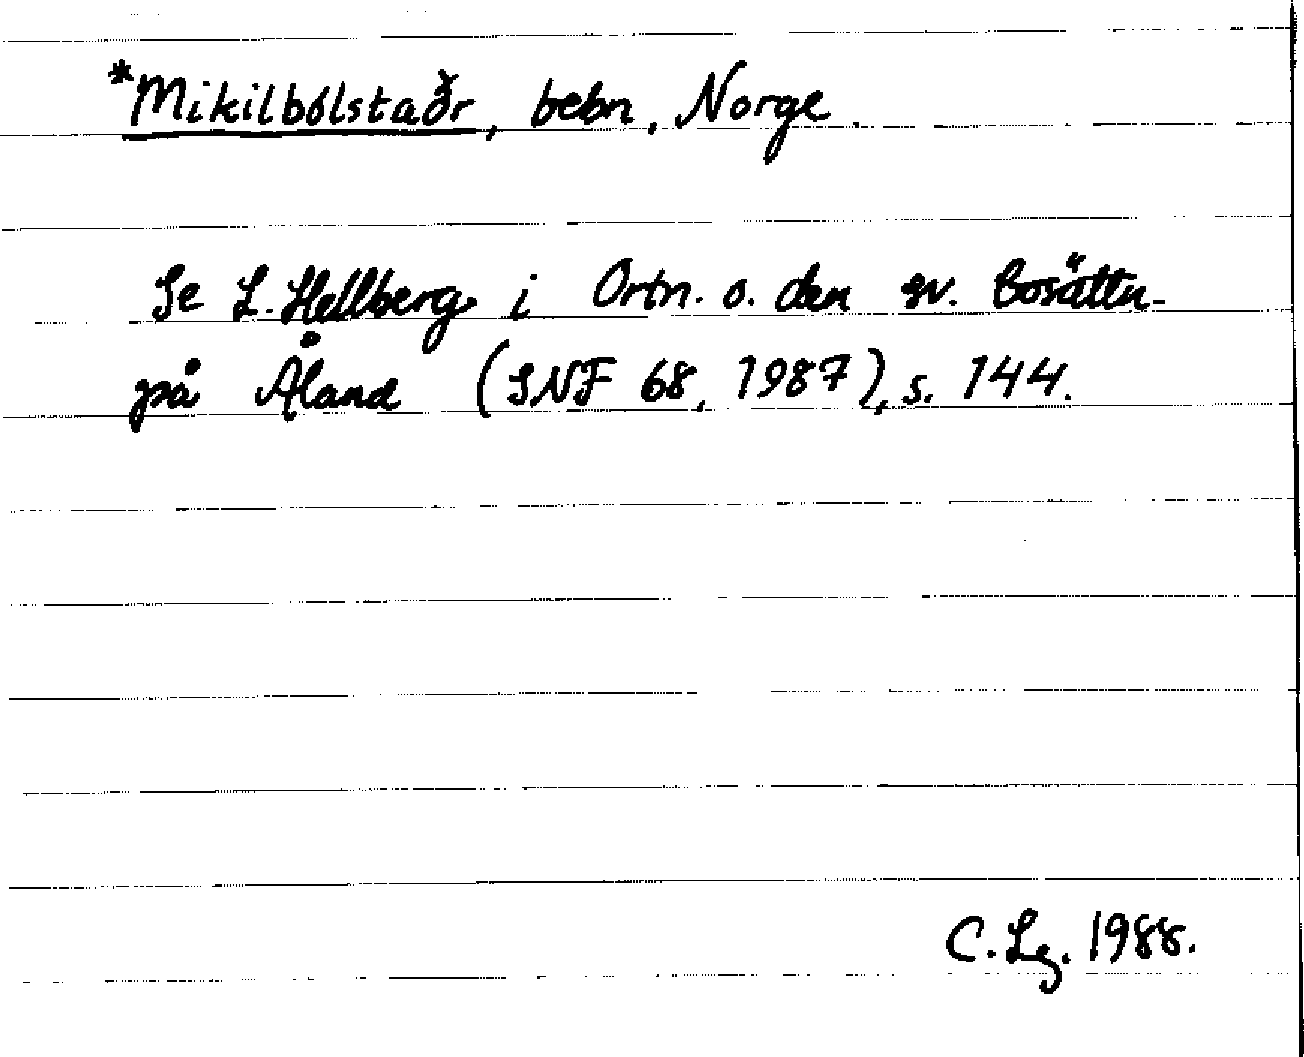 *Mikilbólstaðr, bebn, Norge.
Se L. Hellberg i Ortn. o. den sv. bosättn.
på Åland (SNF 68, 1987), s. 144.
C. Lg. 1988.